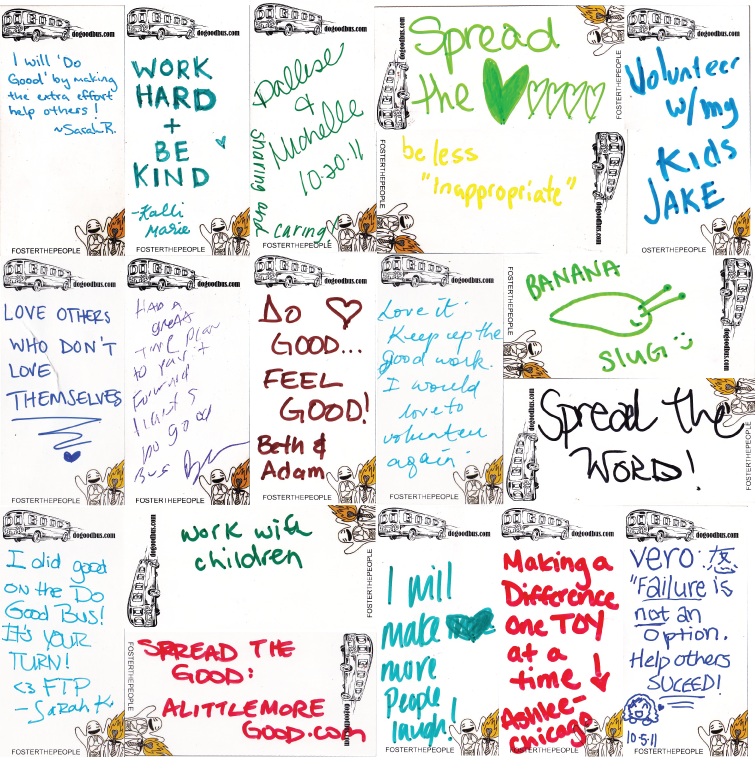 dogoodbus.com
I will 'Do
Good' by making
the extra effort
help others!
~Sarah R.
dogoodbus.com
WORK
HARD
+
BE
KIND
-Kalli
Marie
FOSTERTHEPEOPLE
dogoodbus.com
Dallese
&
Michelle
10-20-11
sharing and
caring
FOSTERTHEPEOPLE
dogoodbus.com
Spread
the
FOSTERTHEPEOPLE
be less
"Inappropriate"
dogoodbus.com
FOSTERTHEPEOPLE
dogoodbus.com
Volunteer
w/my
Kids
JAKE
OSTERTHEPEOPLE
dogoodbus.com
LOVE OTHERS
WHO DON'T
LOVE
THEMSELVES
FOSTERTHEPEOPLE
dogoodbus.com
HAD A
great
Time plan
to pay it
Forward
Do good
Bus
FOSTERTHEPEOPLE
dogoodbus.com
Do
GOOD...
FEEL
GOOD!
Beth &
Adam
FOSTERTHEPEOPLE
dogoodbus.com
Love it.
Keep up the
good work.
I would
love to
volunteer
again.
FOSTERTHEPEOPLE
FOSTERTHEPEOPLE
BANANA
SLUG
dogoodbus.com
dogoodbus.com
Spread the
WORD!
FOSTERTHEPEOPLE
dogoodbus.com
I did good
on the Do
Good Bus!
IT'S YOUR
TURN!
<3 FTP
-Sarah K
FOSTERTHEPEOPLE
dogoodbus.com
work with
children
FOSTERTHEPEOPLE
FOSTERTHEPEOPLE
SPREAD THE
GOOD:
ALITTLEMORE
GOOD.com
dogoodbus.com
dogoodbus.com
I will
make
more
People
laugh!
FOSTERTHEPEOPLE
dogoodbus.com
Making a
Difference
one TOY
at a
time
Ashlee-
chicago
FOSTERTHEPEOPLE
dogoodbus.com
vero
"Failure is
not an
Option.
Help others
SUCEED!
10.5.11
FOSTERTHEPEOPLE